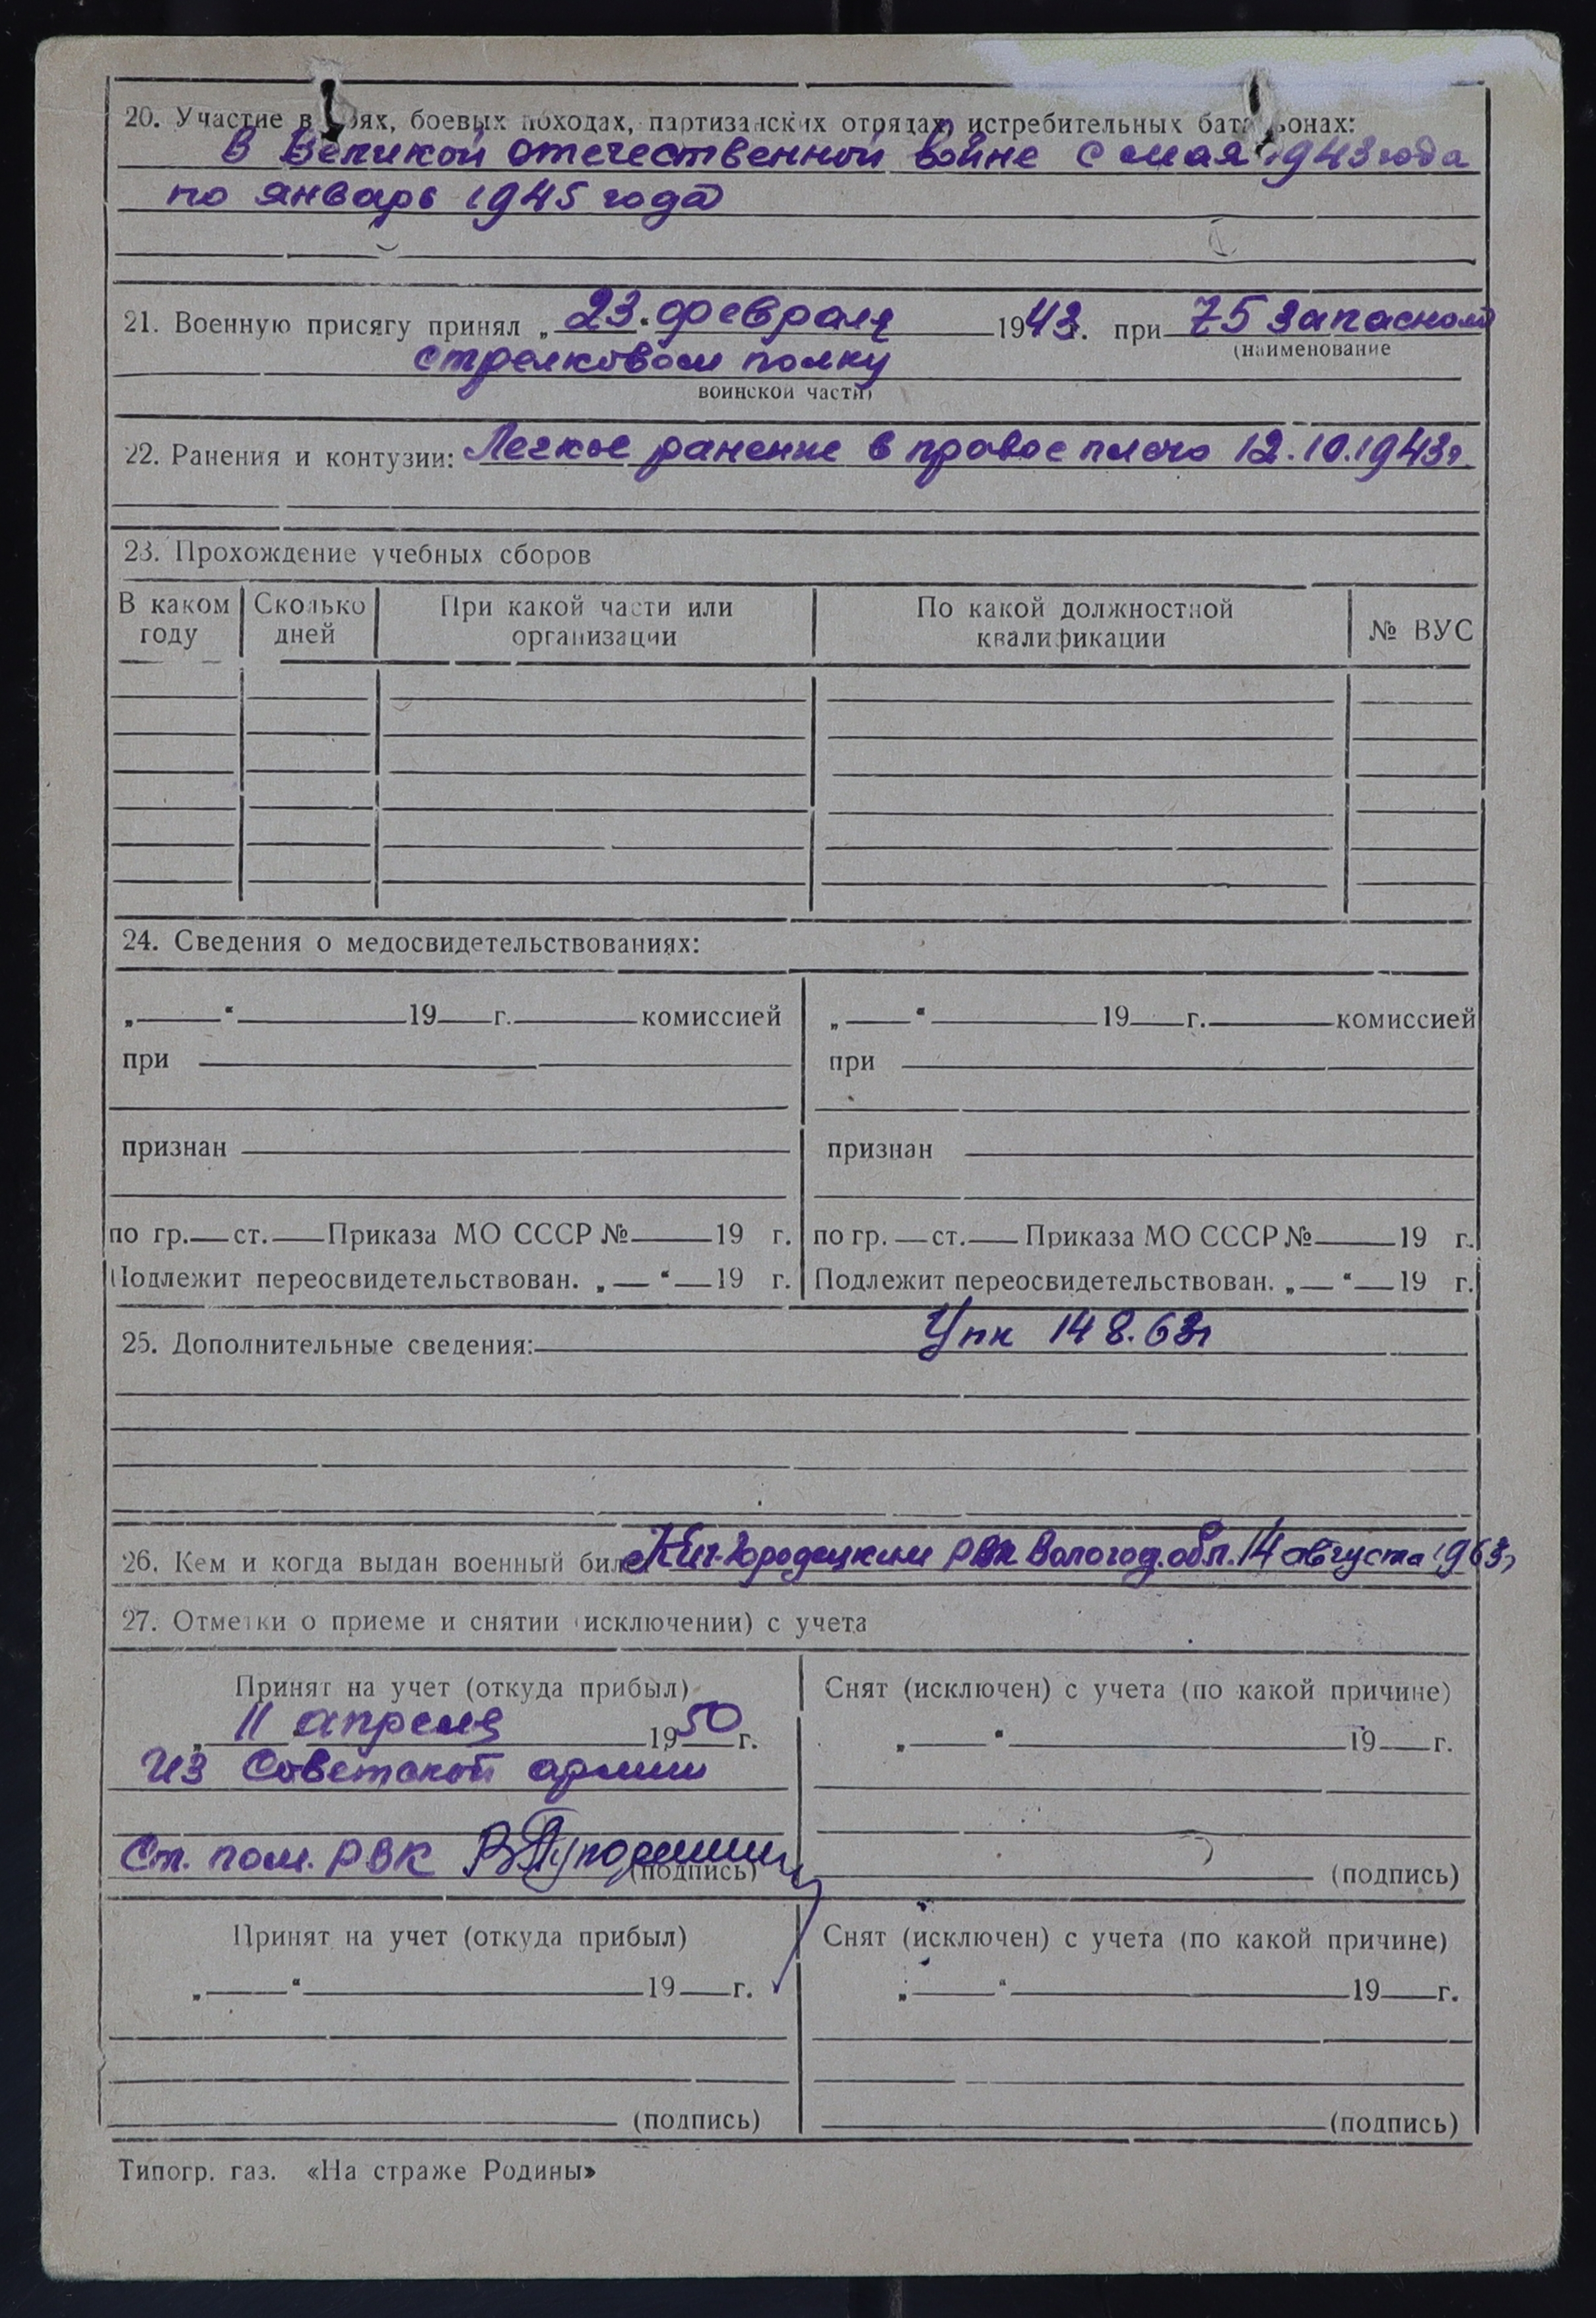 20. Участие в боях, боевых походах, партизанских отрядах, истребительных батальонах:
В Великой отечественной войне с мая 1943 года
по январь 1945 года
21. Военную присягу принял „23“ февраля 1943 г. при 75 запасном
(наименование
стрелковом полку
воинской части)
22. Ранения и контузии: Легкое ранение в правое плечо 12.10.1943г.
23. Прохождение учебных сборов
В каком году | Сколько дней | При какой части или организации | По какой должностной квалификации | № ВУС
24. Сведения о медосвидетельствованиях:
„ “ 19 г. комиссией | „ “ 19 г. комиссией
при | при
признан | признан
по гр. ст. Приказа МО СССР № 19 г. | по гр. ст. Приказа МО СССР № 19 г.
Подлежит переосвидетельствован. „ “ 19 г. | Подлежит переосвидетельствован. „ “ 19 г.
25. Дополнительные сведения: 14 8.63г
26. Кем и когда выдан военный билет Кич-Городецким РВК Вологод. обл. 14 августа 1963г
27. Отметки о приеме и снятии (исключении) с учета
Принят на учет (откуда прибыл) | Снят (исключен) с учета (по какой причине)
„11“ апреля 1950 г. | „ “ 19 г.
из Советской армии
Ст. пом. РВК
(подпись) | (подпись)
Принят на учет (откуда прибыл) | Снят (исключен) с учета (по какой причине)
„ “ 19 г. | „ “ 19 г.
(подпись) | (подпись)
Типогр. газ. «На страже Родины»